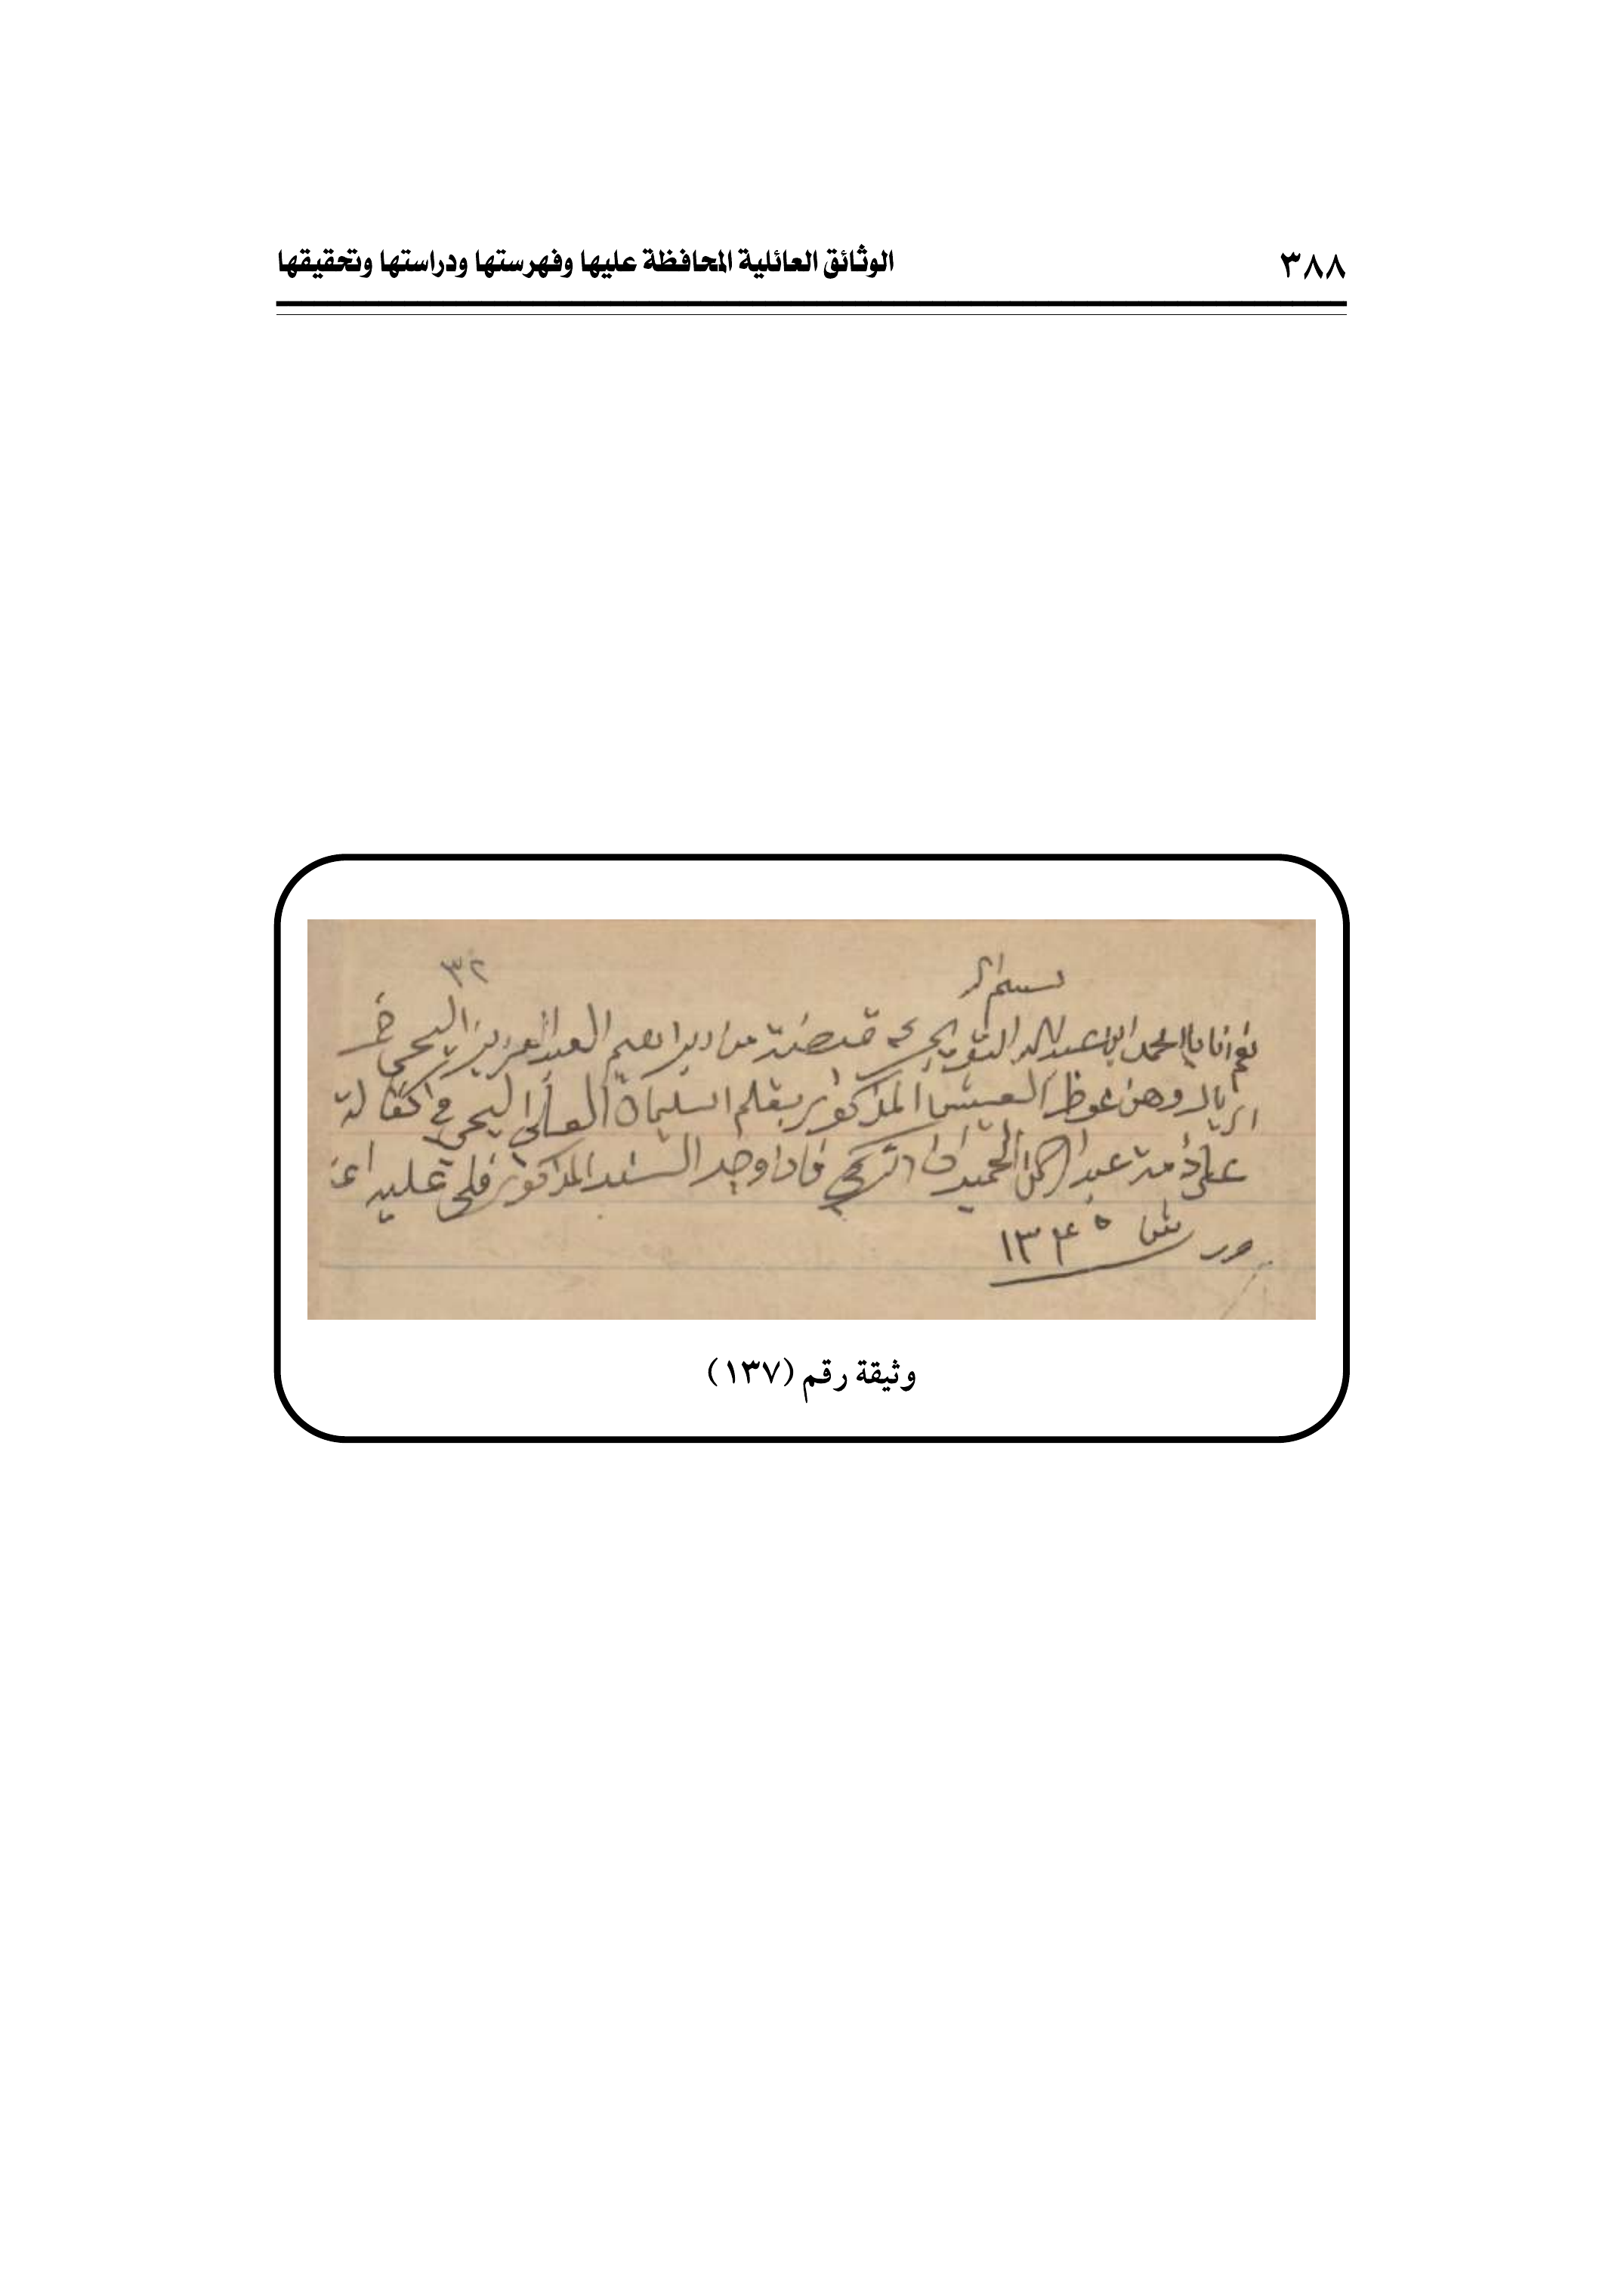 ٣٨٨
الوثائق العائلية المحافظة عليها وفهرستها ودراستها وتحقيقها
بسم الله
٣٢
نعم انا يا محمد ابن عبدالله التويجري قبضت من ابراهيم العبدالعزيز اليحي
اريال وهن عوظ العيش المذكور بقلم السليمان العلي اليحي في كفالة
على ذمة عبدالرحمن الحميدان التركي فاذا وجد السند المذكور فلحي عليه
١٣٤٥
وثيقة رقم (١٣٧)